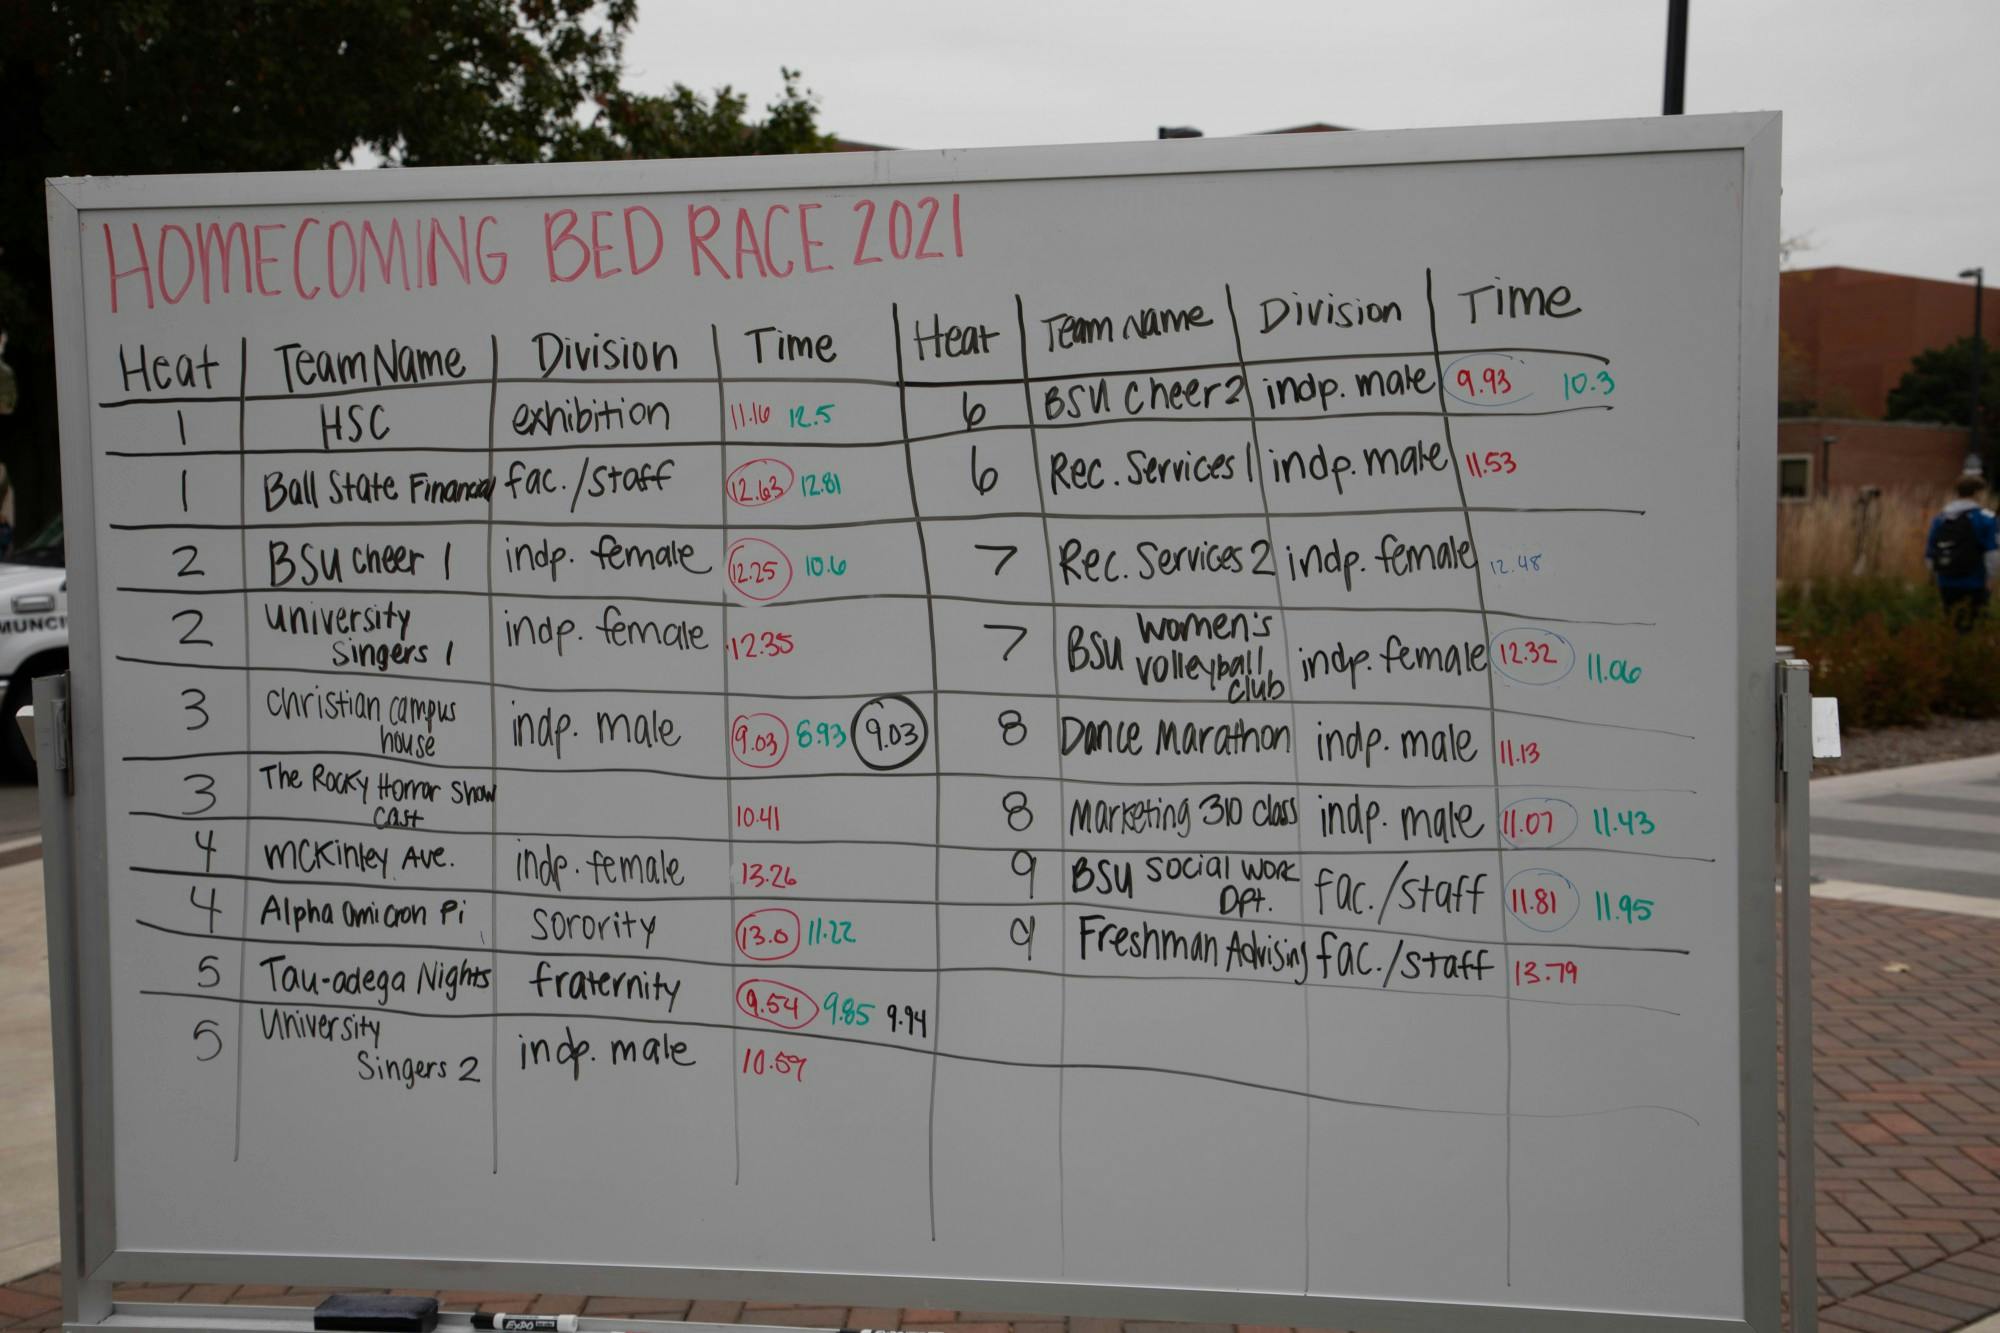 HOMECOMING BED RACE 2021
Heat Team Name Division Time
1 HSC exhibition 11.16 12.5
1 Ball State Financial fac./staff 12.63 12.81
2 BSU Cheer 1 indp. female 12.25 10.6
2 University Singers 1 indp. female 12.35
3 Christian campus house indp. male 9.03 8.93 9.03
3 The Rocky Horror Show cast 10.41
4 McKinley Ave. indp. female 13.26
4 Alpha Omicron Pi sorority 13.0 11.22
5 Tau-adega Nights fraternity 9.54 9.85 9.94
5 University Singers 2 indp. male 10.59
Heat Team Name Division Time
6 BSU Cheer 2 indp. male 9.93 10.3
6 Rec. Services 1 indp. male 11.53
7 Rec. Services 2 indp. female 12.48
7 BSU women's volleyball club indp. female 12.32 11.06
8 Dance Marathon indp. male 11.13
8 Marketing 310 class indp. male 11.07 11.43
9 BSU Social Work Dpt. fac./staff 11.81 11.95
9 Freshman Advising fac./staff 13.79
MUNCI
EXPO